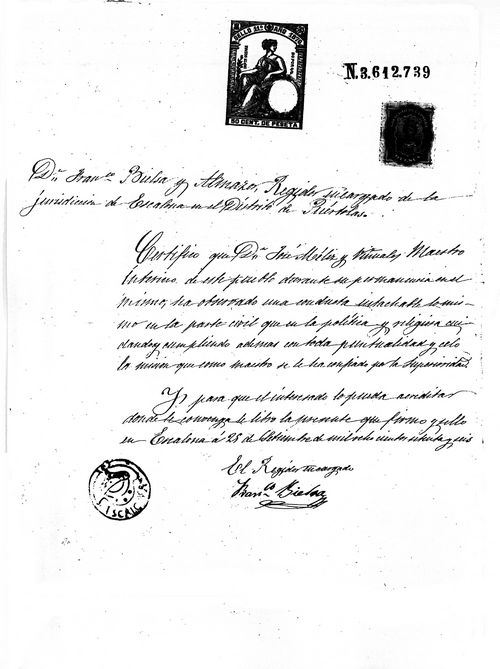 SELLO 11º AÑO 1876
50 CENT. DE PESETA
N.3.612.739
Dn. Franco. Bielsa y Almazor, Regidor encargado de la
jurisdiccion de Escalona en el Distrito de Puértolas.
Certifico que Dn. José Mélix y Viñuales Maestro
Interino de este pueblo durante su permanencia en el
mismo, ha observado una conducta intachable lo mis-
mo en la parte civil que en la politica y religiosa cui-
dando y cumpliendo ademas con toda puntualidad y celo
la mision que como maestro se le ha confiado por la Superioridad.
Y para que el interesado lo pueda acreditar
donde le convenga le libro la presente que firmo y sello
en Escalona á 25 de Setiembre de mil ocho cientos setenta y seis
El Regidor encargado
Franco. Bielsa